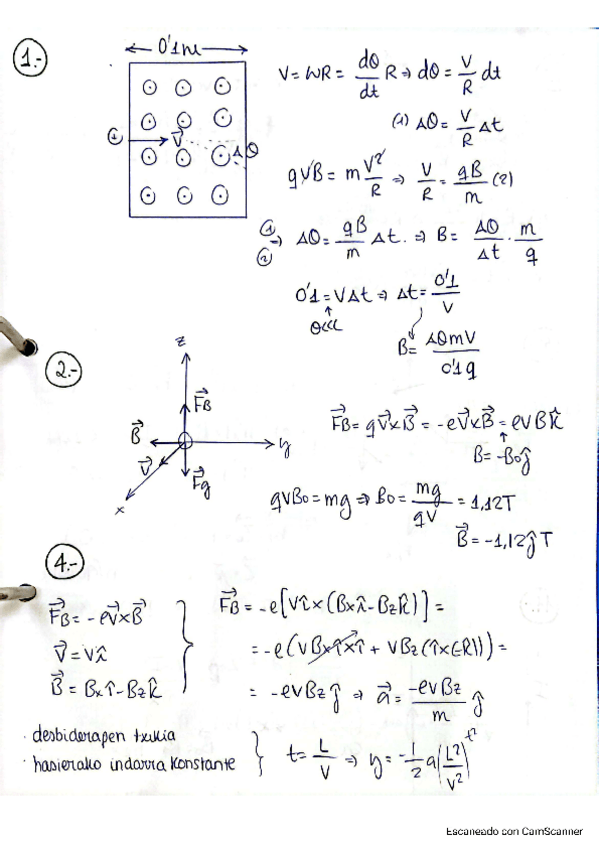 1.-
0'1m
V = WR = dθ/dt R ⇒ dθ = V/R dt
(1) Δθ = V/R Δt
① V⃗ Δθ
qVB = m V²/R ⇒ V/R = qB/m (2)
① ② ⇒ Δθ = qB/m Δt. ⇒ B = Δθ/Δt · m/q
0'1 = VΔt ⇒ Δt = 0'1/V
B = ΔθmV/0'1q
2.-
z
F⃗B
B⃗
y
V⃗
F⃗g
x
F⃗B = qV⃗xB⃗ = -eV⃗xB⃗ = eVBk̂
B = -B₀ĵ
qVB₀ = mg ⇒ B₀ = mg/qV = 1,12T
B⃗ = -1,12ĵ T
4.-
F⃗B = -eV⃗xB⃗
V⃗ = Vî
B⃗ = Bxî - Bzk̂
F⃗B = -e[Vî x (Bxî - Bzk̂)] =
= -e(VBxîxî + VBz(îx(-k̂))) =
= -eVBzĵ ⇒ a⃗ = -eVBz/m ĵ
· desbiderapen txikia
· hasierako indarra konstante
t = L/V ⇒ y = -1/2 a(L²/V²) t²
Escaneado con CamScanner